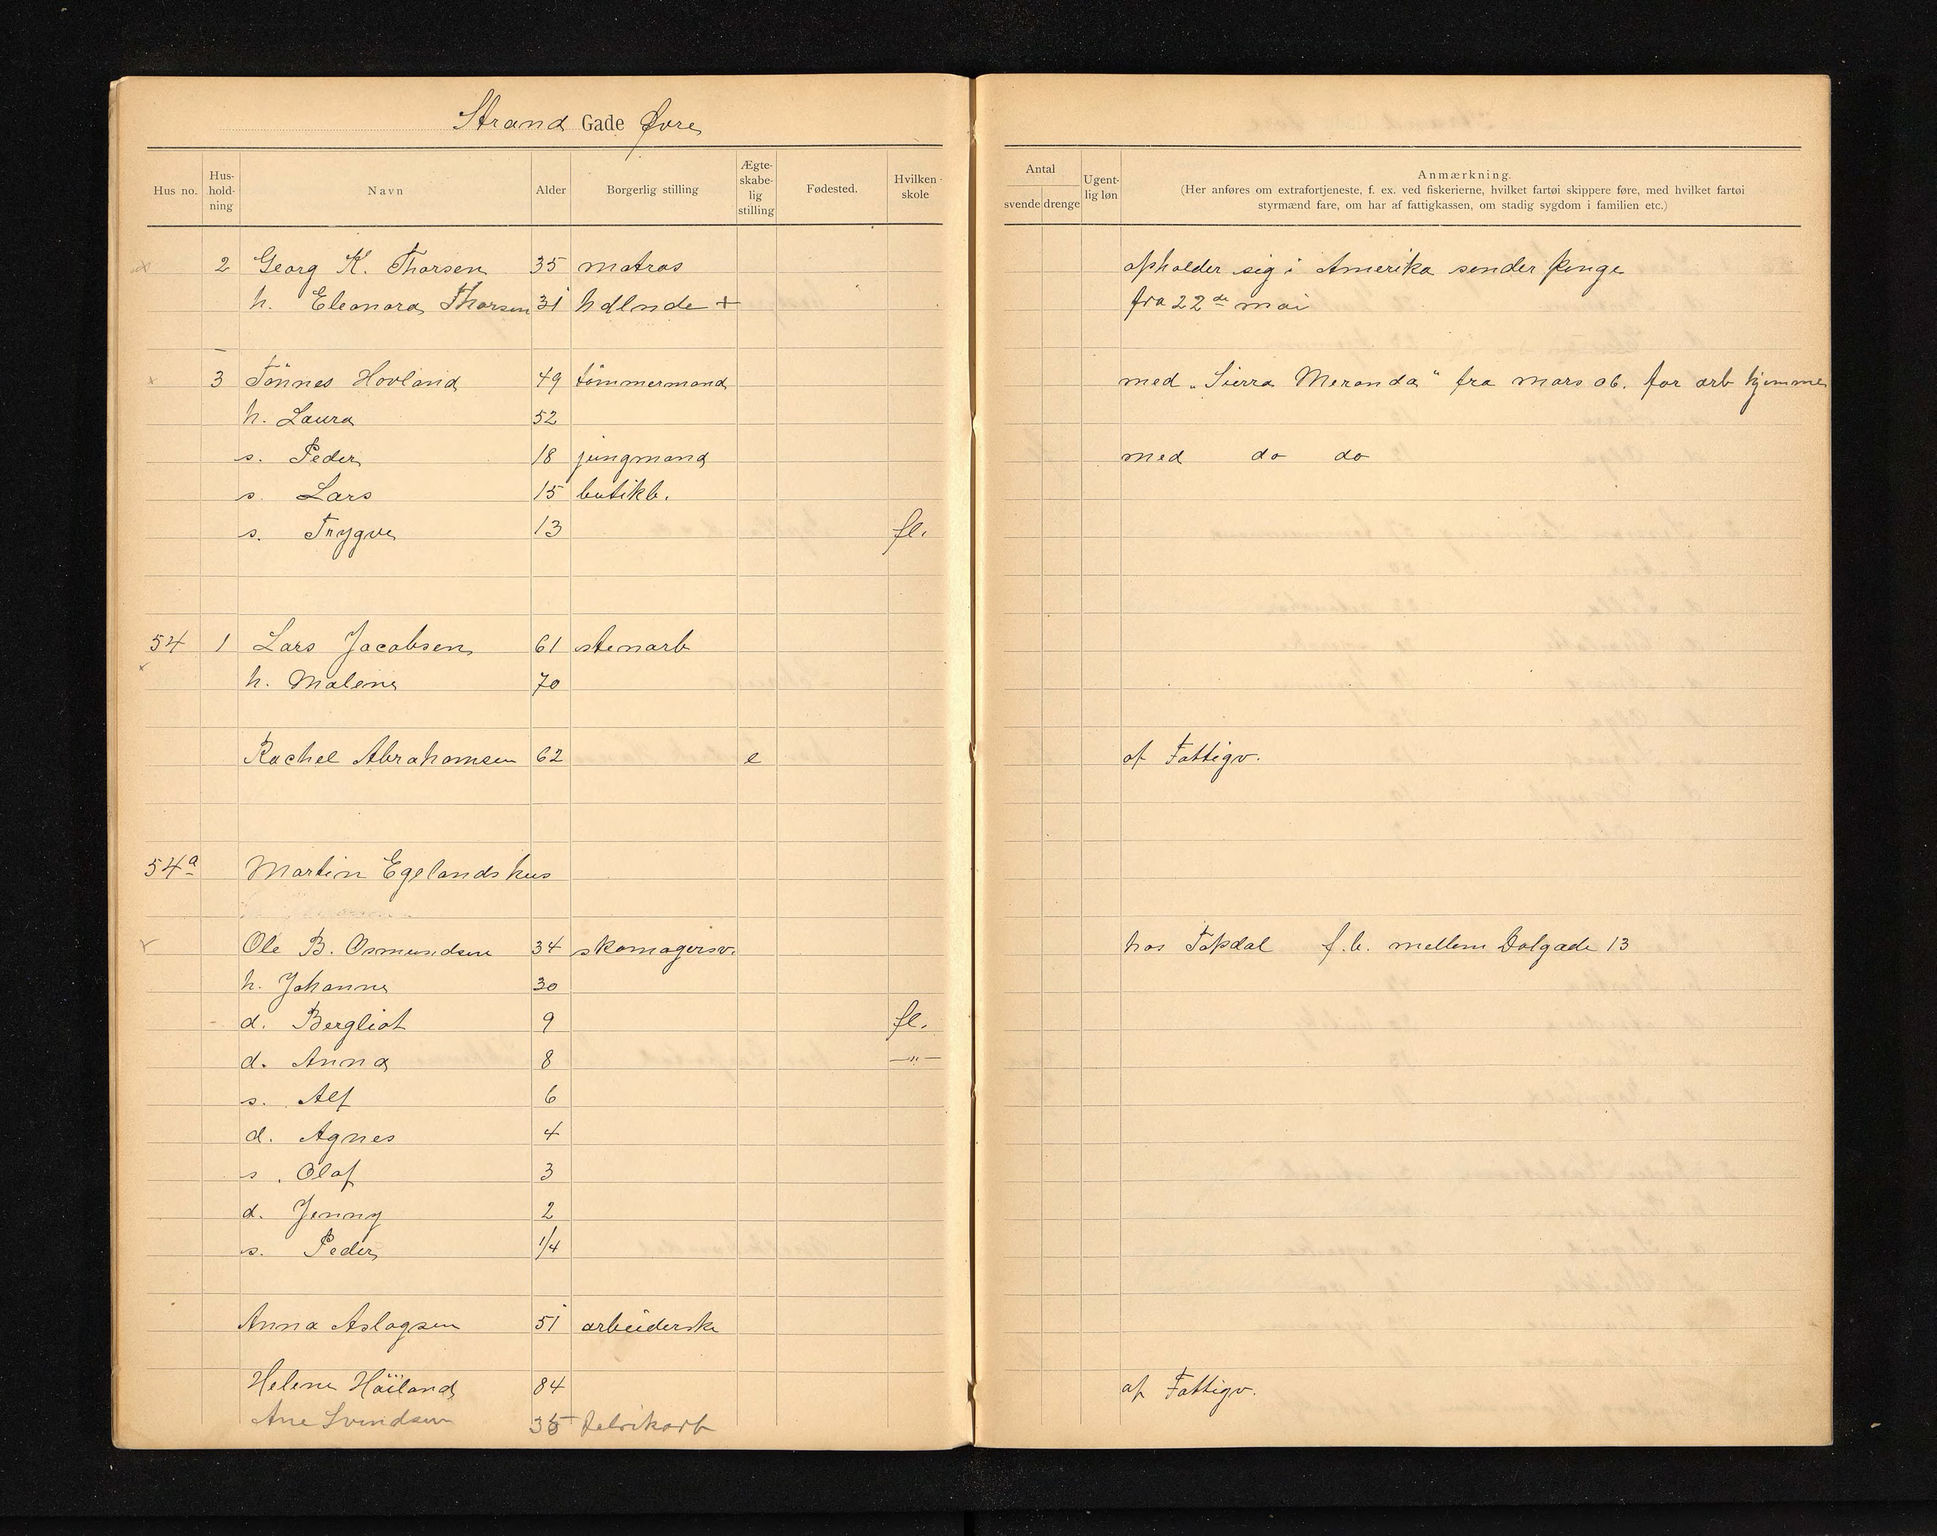 Strand Gade Øvre
Hus no. Hus-hold-ning Navn Alder Borgerlig stilling Ægte-skabe-lig stilling Fødested. Hvilken skole
Antal svende drenge Ugent-lig løn Anmærkning.
(Her anføres om extrafortjeneste, f. ex. ved fiskerierne, hvilket fartøi skippere føre, med hvilket fartøi
styrmænd fare, om har af fattigkassen, om stadig sygdom i familien etc.)
2 Georg K. Thorsen 35 matros opholder sig i Amerika sender penge
h. Eleonora Thorsen 31 hdlnde + fra 22de mai
3 Tönnes Hovland 49 tömmermand med "Sierra Meranda" fra mars 06. før arb hjemme
h. Laura 52
s. Peder 18 jungmand med do do
s. Lars 15 butikb.
s. Trygve 13 fl.
54 1 Lars Jacobsen 61 stenarb
h. Malene 70
Rachel Abrahamsen 62 e af Fattigv.
54a Martin Egelands hus
Ole B. Osmundsen 34 skomagersv. hos Topdal f.b. mellem Dalgade 13
h. Johanne 30
d. Bergliot 9 fl.
d. Anna 8 —"—
s. Alf 6
d. Agnes 4
s. Olaf 3
d. Jenny 2
s. Peder 1/4
Anna Aslagsen 51 arbeiderske
Helene Höiland 84 af Fattigv.
Ane Svendsen 35 fabrikarb